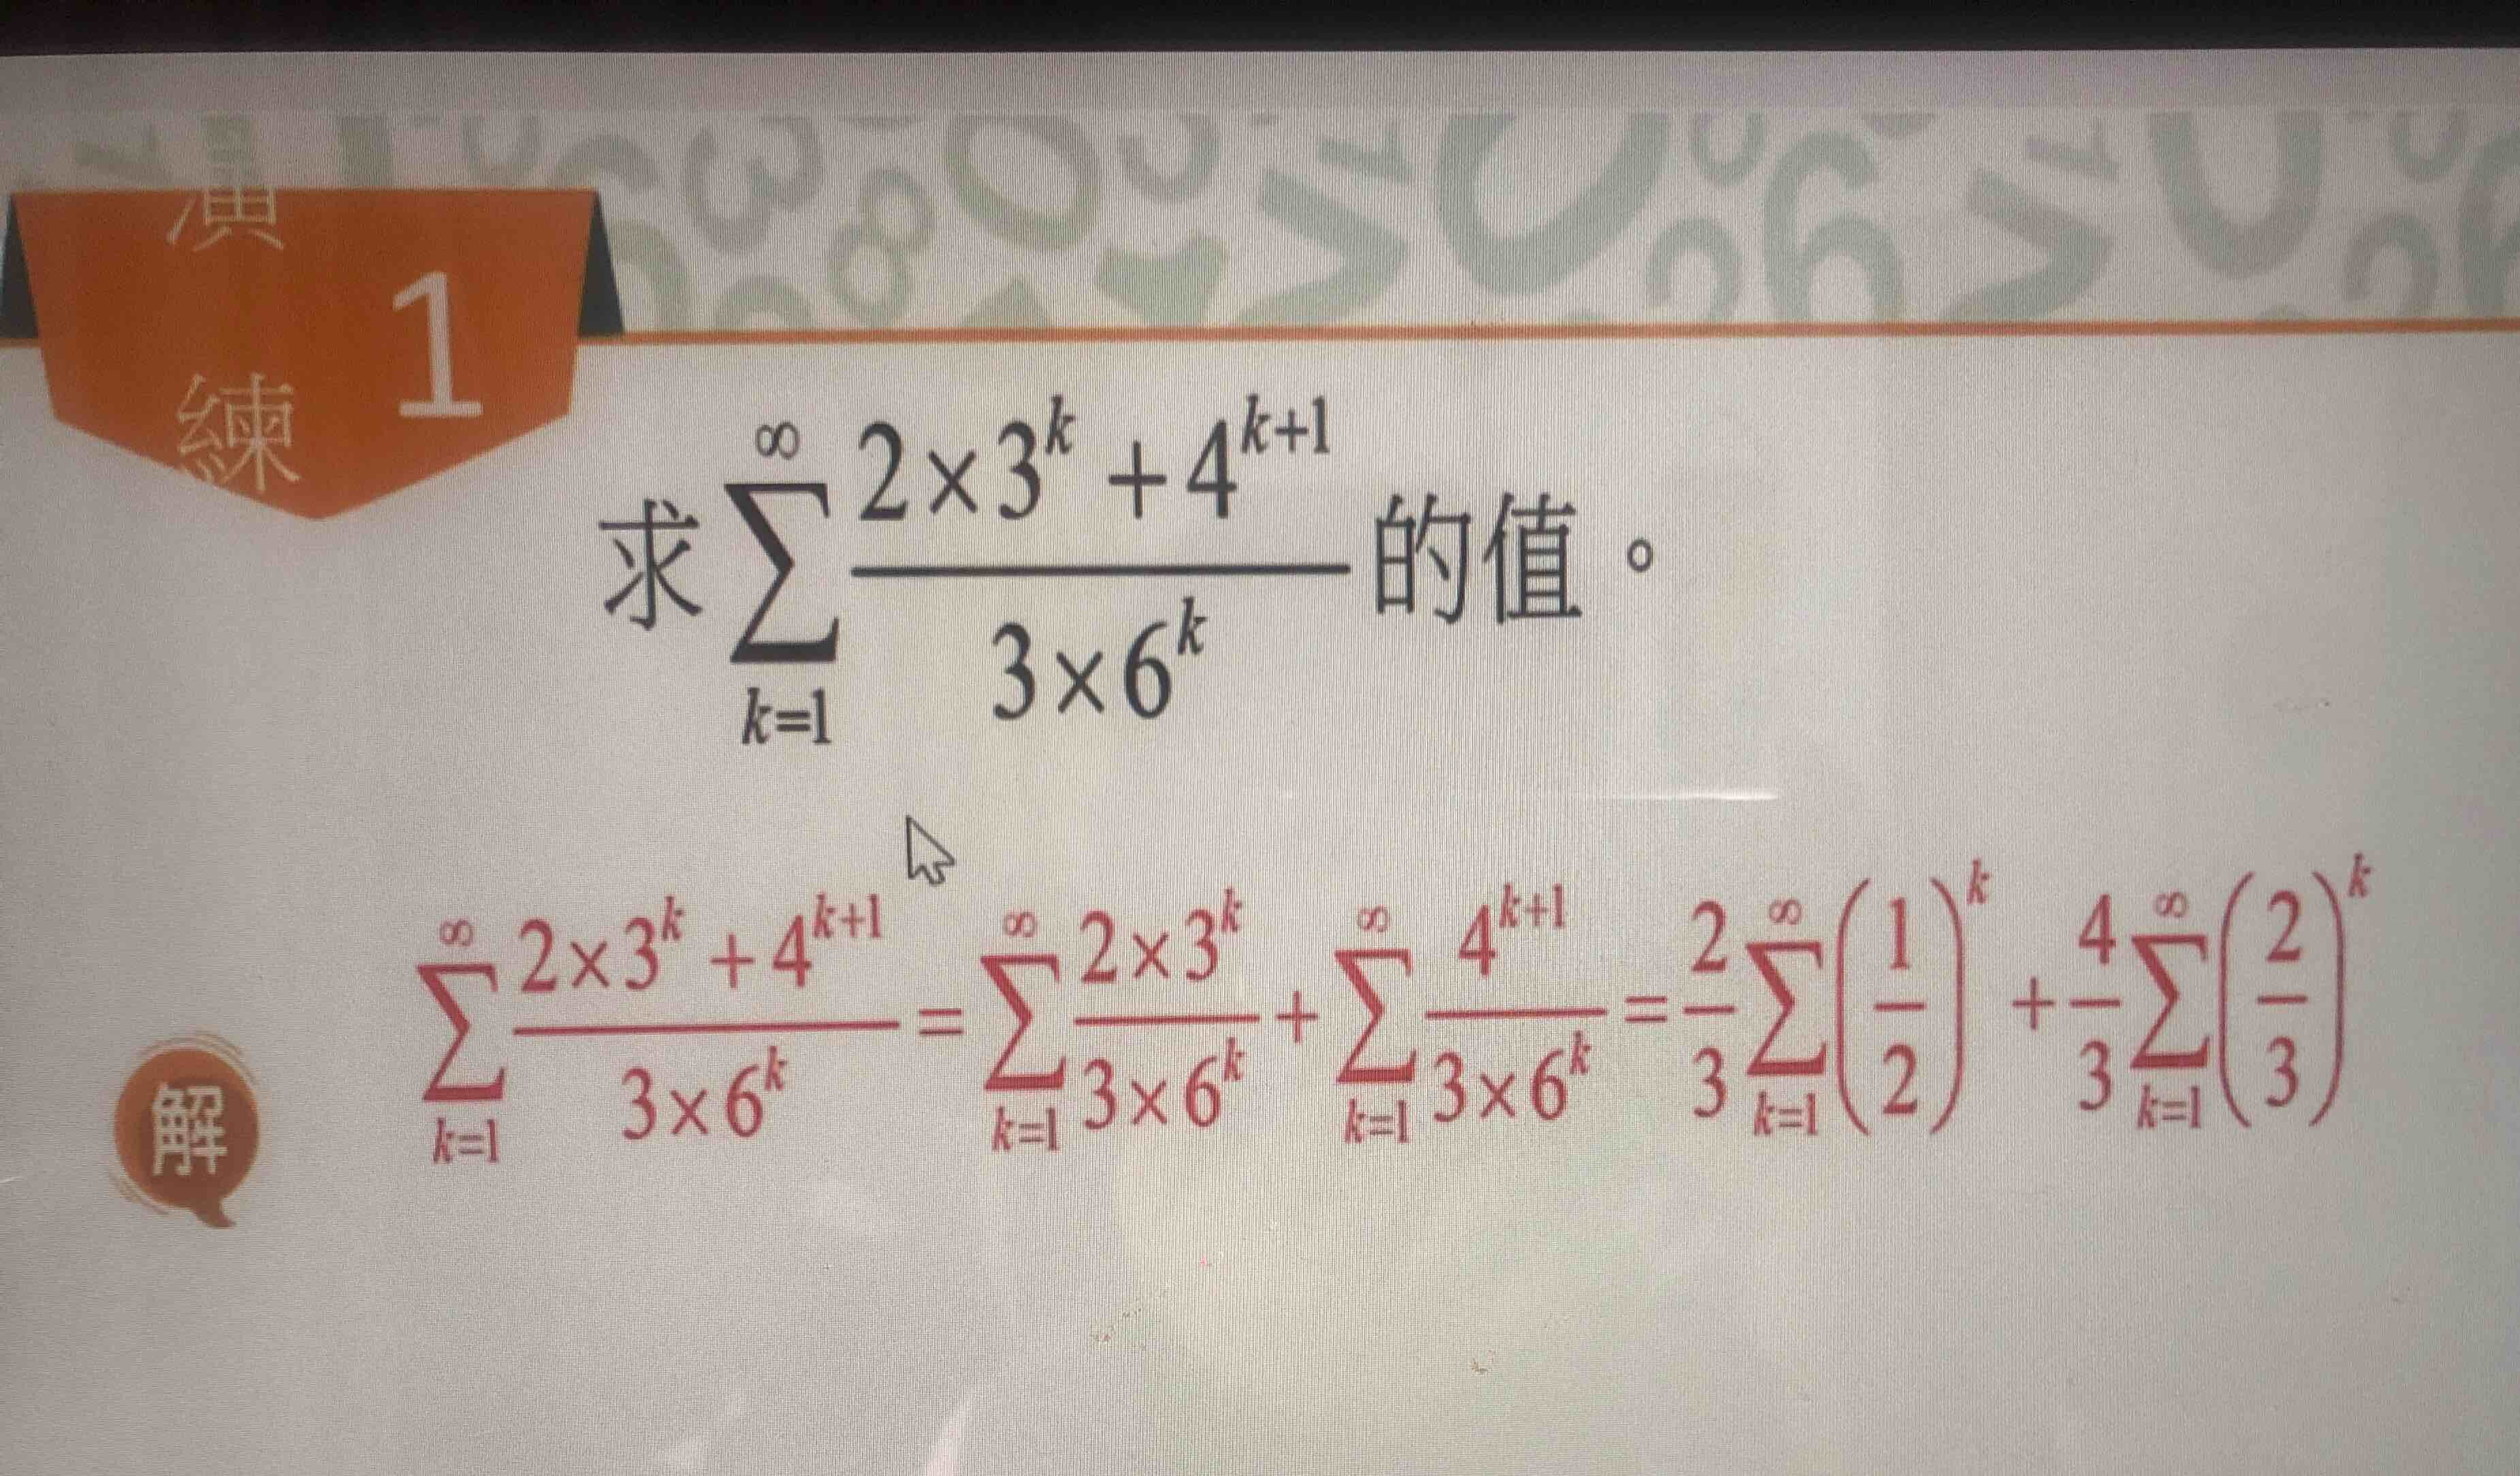 演練 1
求 ∑_{k=1}^{∞} (2×3^k + 4^{k+1}) / (3×6^k) 的值。
解 ∑_{k=1}^{∞} (2×3^k + 4^{k+1}) / (3×6^k) = ∑_{k=1}^{∞} (2×3^k) / (3×6^k) + ∑_{k=1}^{∞} 4^{k+1} / (3×6^k) = 2/3 ∑_{k=1}^{∞} (1/2)^k + 4/3 ∑_{k=1}^{∞} (2/3)^k